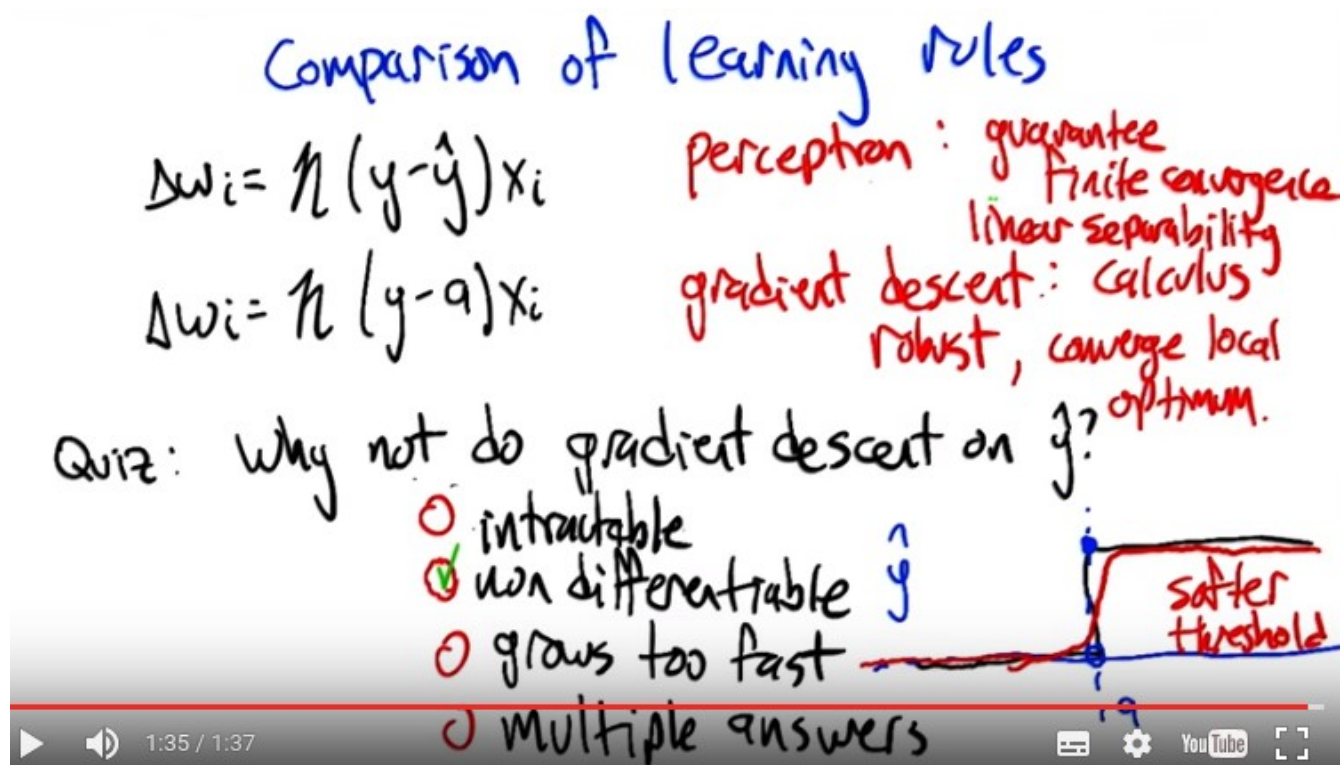 Comparison of learning rules
Δwi = η (y-ŷ) xi
perceptron : guarantee
finite convergence
linear separability
Δwi = η (y-a) xi
gradient descent : calculus
robust, converge local
optimum.
Quiz: Why not do gradient descent on ŷ?
intractable
non differentiable
grows too fast
multiple answers
ŷ
softer
threshold
a
1:35 / 1:37
YouTube